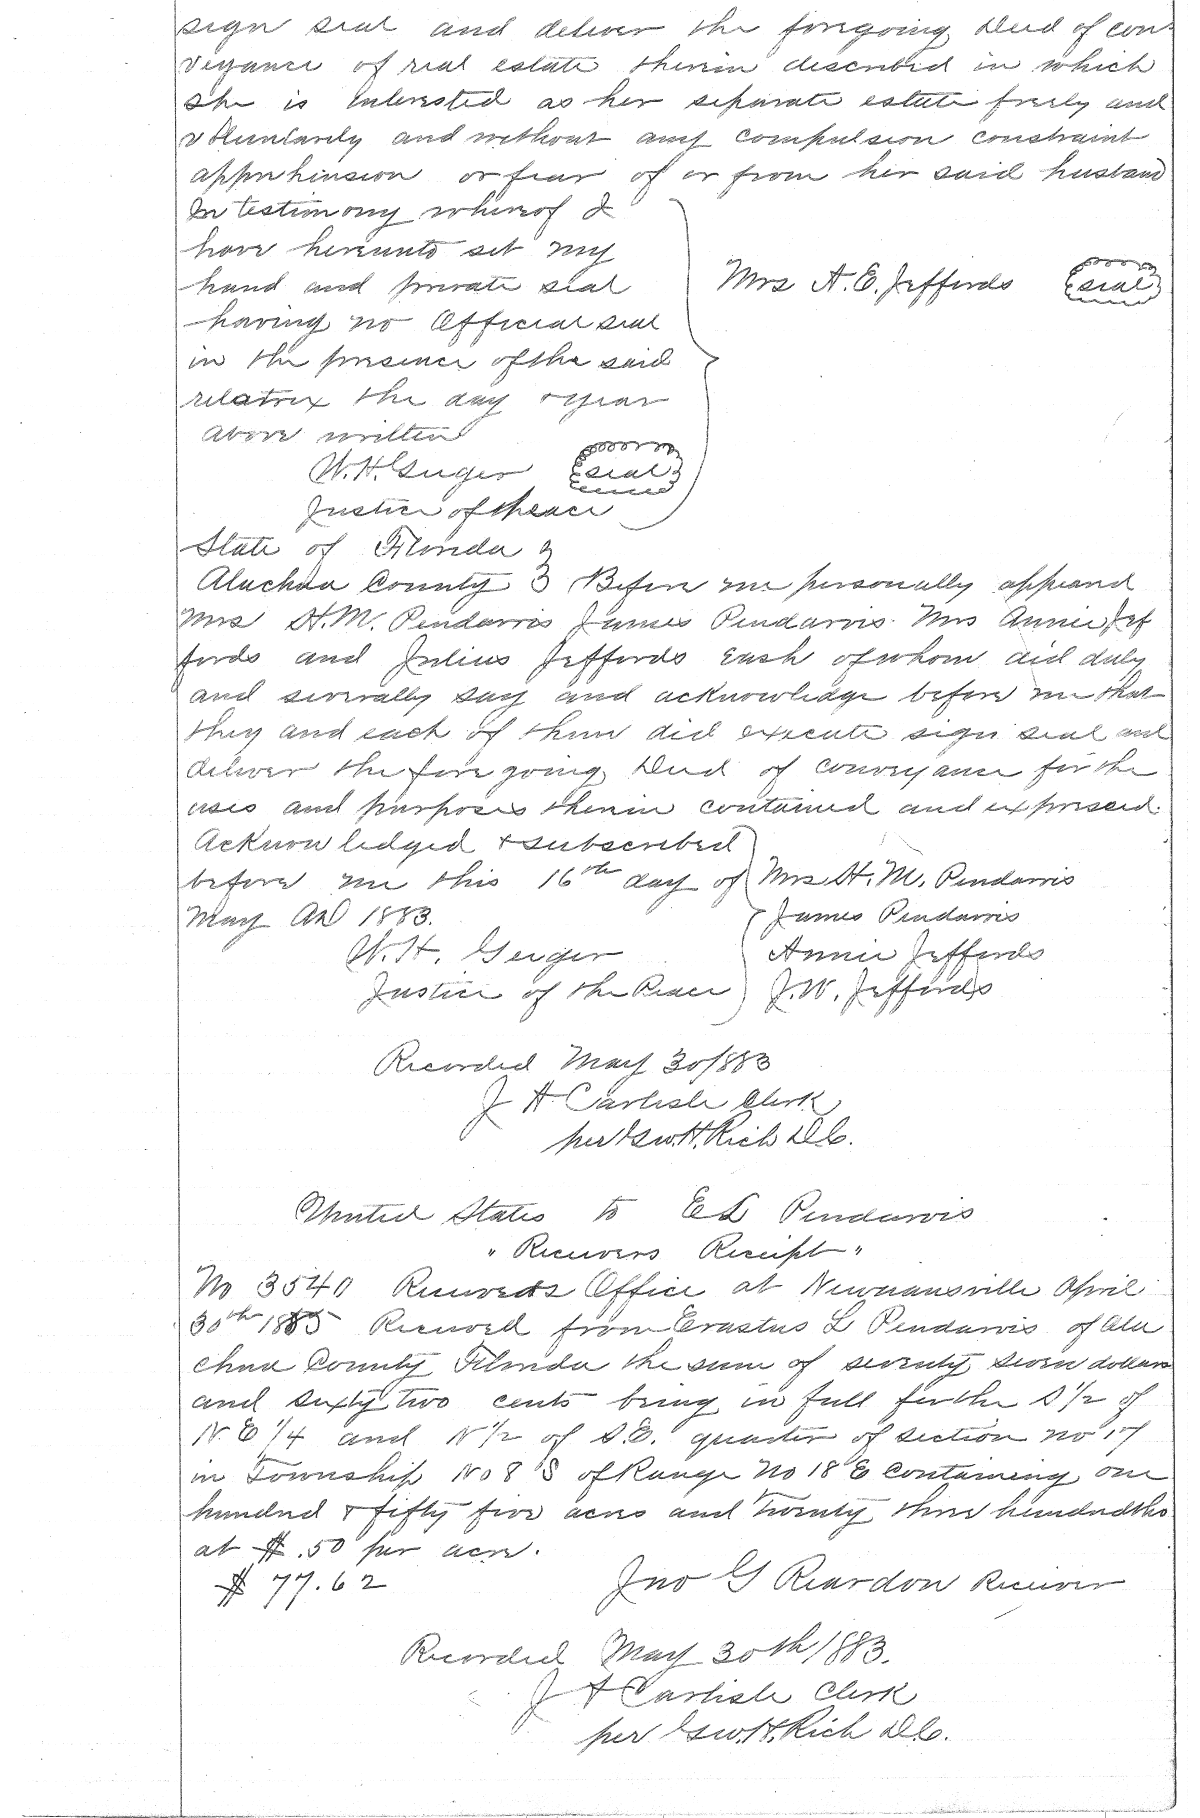 sign seal and deliver the foregoing Deed of con-
veyance of real estate therein described in which
she is interested as her separate estate freely and
voluntarily and without any compulsion constraint
apprehension or fear of or from her said husband
In testimony whereof I
have hereunto set my
hand and private seal
having no Official seal
in the presence of the said
relatrix the day & year
above written
Mrs A. E. Jeffords seal
W. H. Geiger seal
Justice of the Peace
State of Florida
Alachua County Before me personally appeared
Mrs H. M. Pendarvis James Pendarvis Mrs Annie Jef
fords and Julius Jeffords each of whom did duly
and severally say and acknowledge before me that
they and each of them did execute sign seal and
deliver the foregoing Deed of conveyance for the
uses and purposes therein contained and expressed.
Acknowledged & subscribed
before me this 16th day of
May AD 1883.
W. H. Geiger
Justice of the Peace
Mrs H. M. Pendarvis
James Pendarvis
Annie Jeffords
J. W. Jeffords
Recorded May 30/1883
J A Carlisle Clerk
per Geo. H. Rich D.C.
United States to E L Pendarvis
"Receivers Receipt"
No 3540 Receivers Office at Newnansville April
30th Received from Erastus L Pendarvis of Ala
chua County Florida the sum of seventy seven dollars
and sixty two cents being in full for the S 1/2 of
N. E 1/4 and N 1/2 of S. E. quarter of section no 17
in Township No 8 S of Range No 18 E containing one
hundred & fifty five acres and twenty three hundredths
at $ .50 per acre.
$ 77.62
Jno G Reardon Receiver
Recorded May 30th 1883.
J A Carlisle Clerk
per Geo. H. Rich D.C.